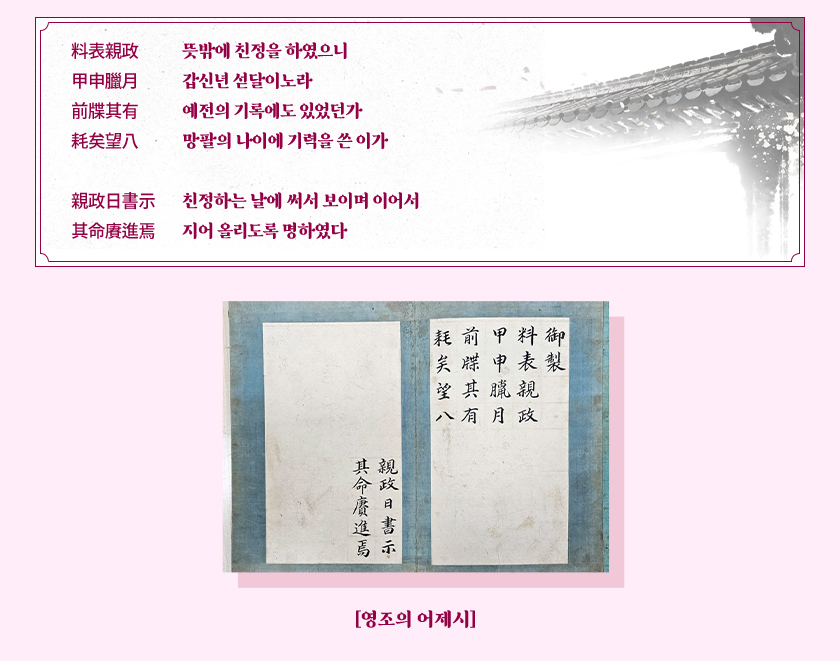 料表親政 뜻밖에 친정을 하였으니
甲申臘月 갑신년 섣달이노라
前牒其有 예전의 기록에도 있었던가
耗矣望八 망팔의 나이에 기력을 쓴 이가
親政日書示 친정하는 날에 써서 보이며 이어서
其命賡進焉 지어 올리도록 명하였다
御製
料表親政
甲申臘月
前牒其有
耗矣望八
親政日書示
其命賡進焉
[영조의 어제시]